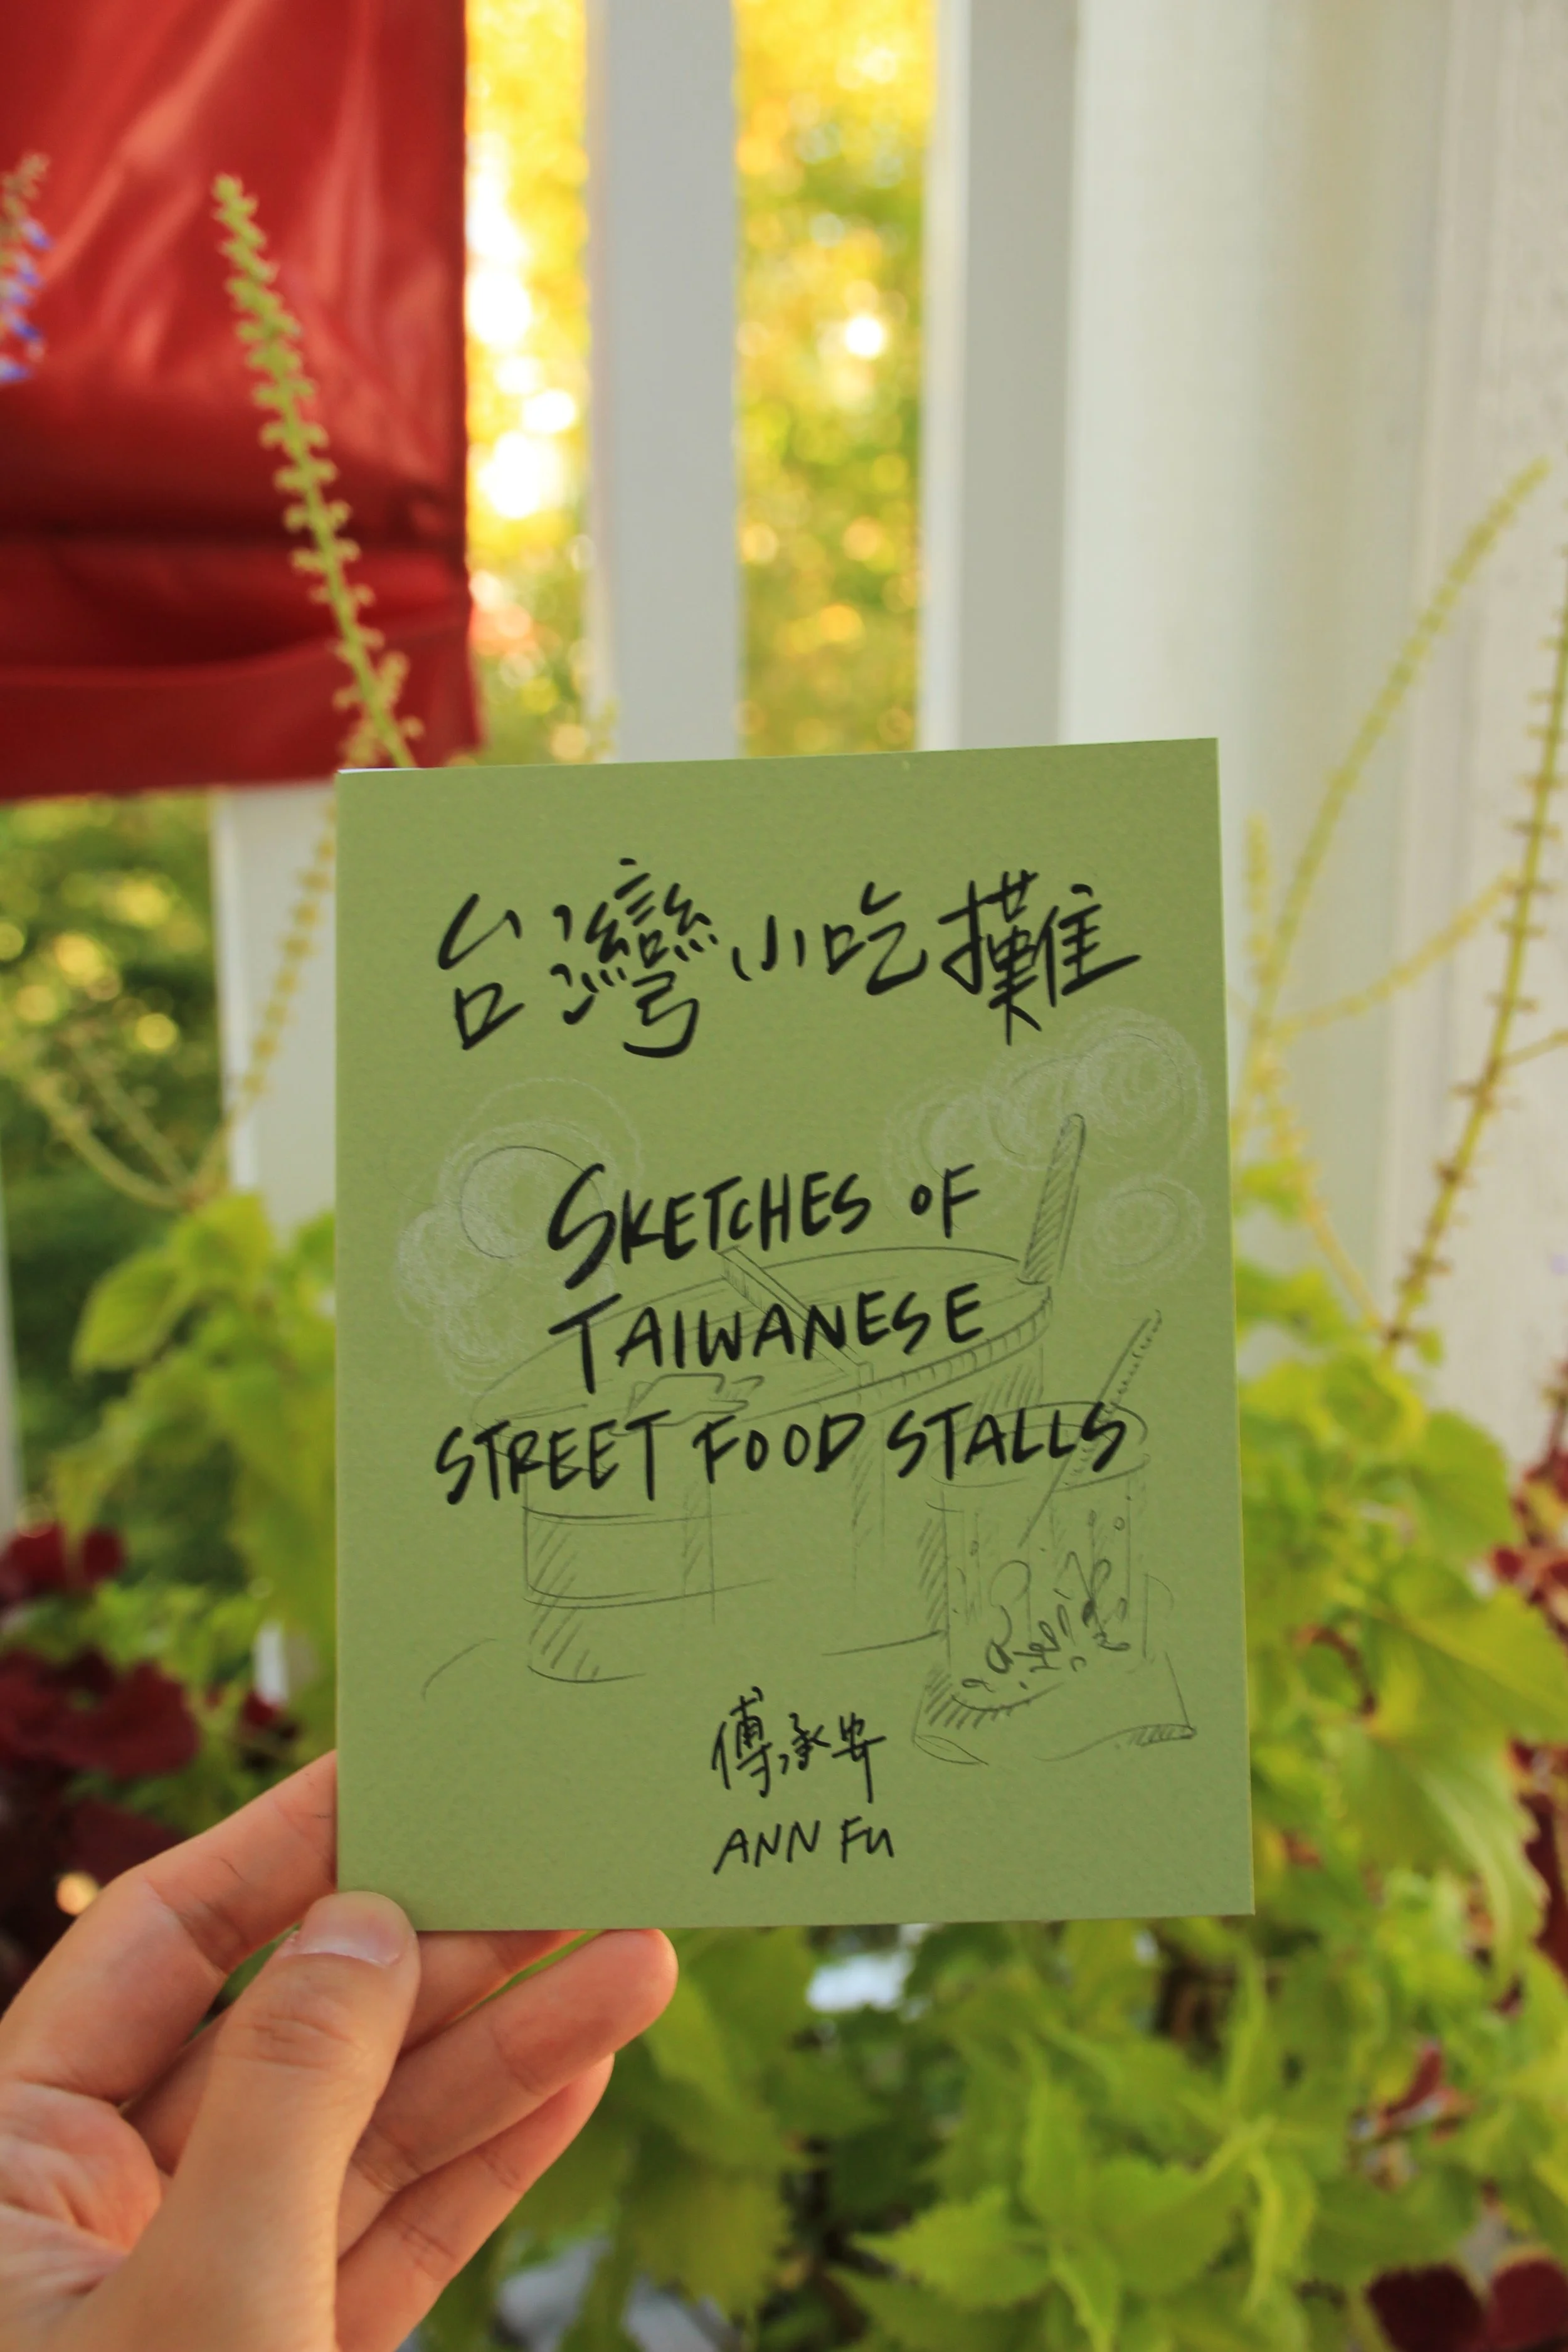 台灣小吃攤
SKETCHES OF
TAIWANESE
STREET FOOD STALLS
傅承安
ANN FU